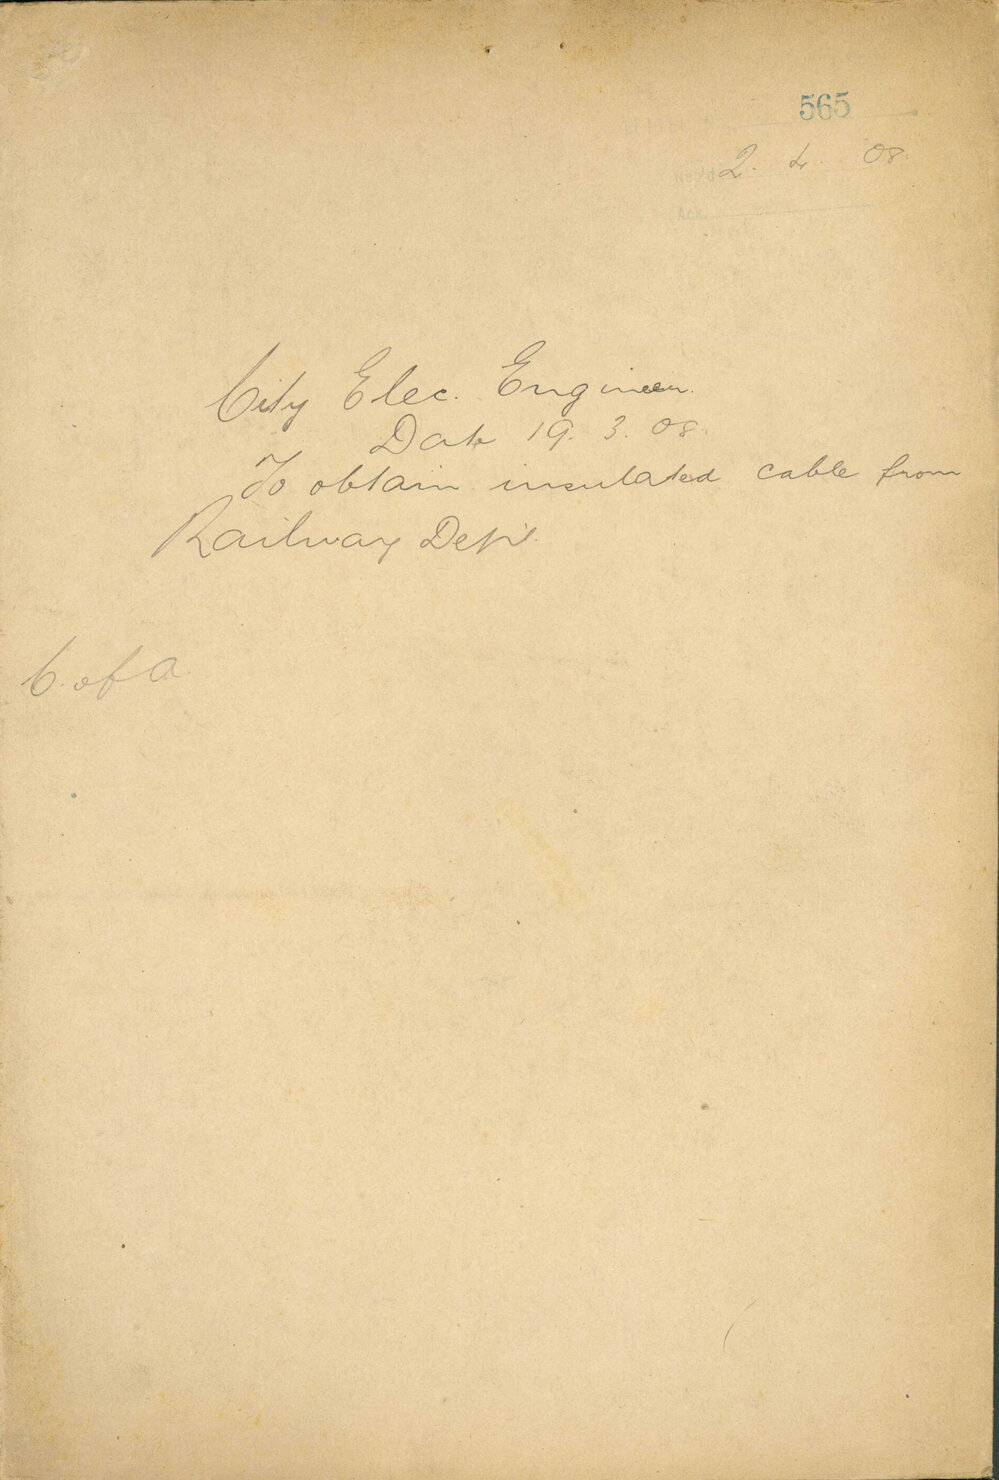 565
2. 4. 08.
Ack.
City Elec. Engineer.
Date 19. 3. 08.
To obtain insulated cable from
Railway Dept.
C. of A